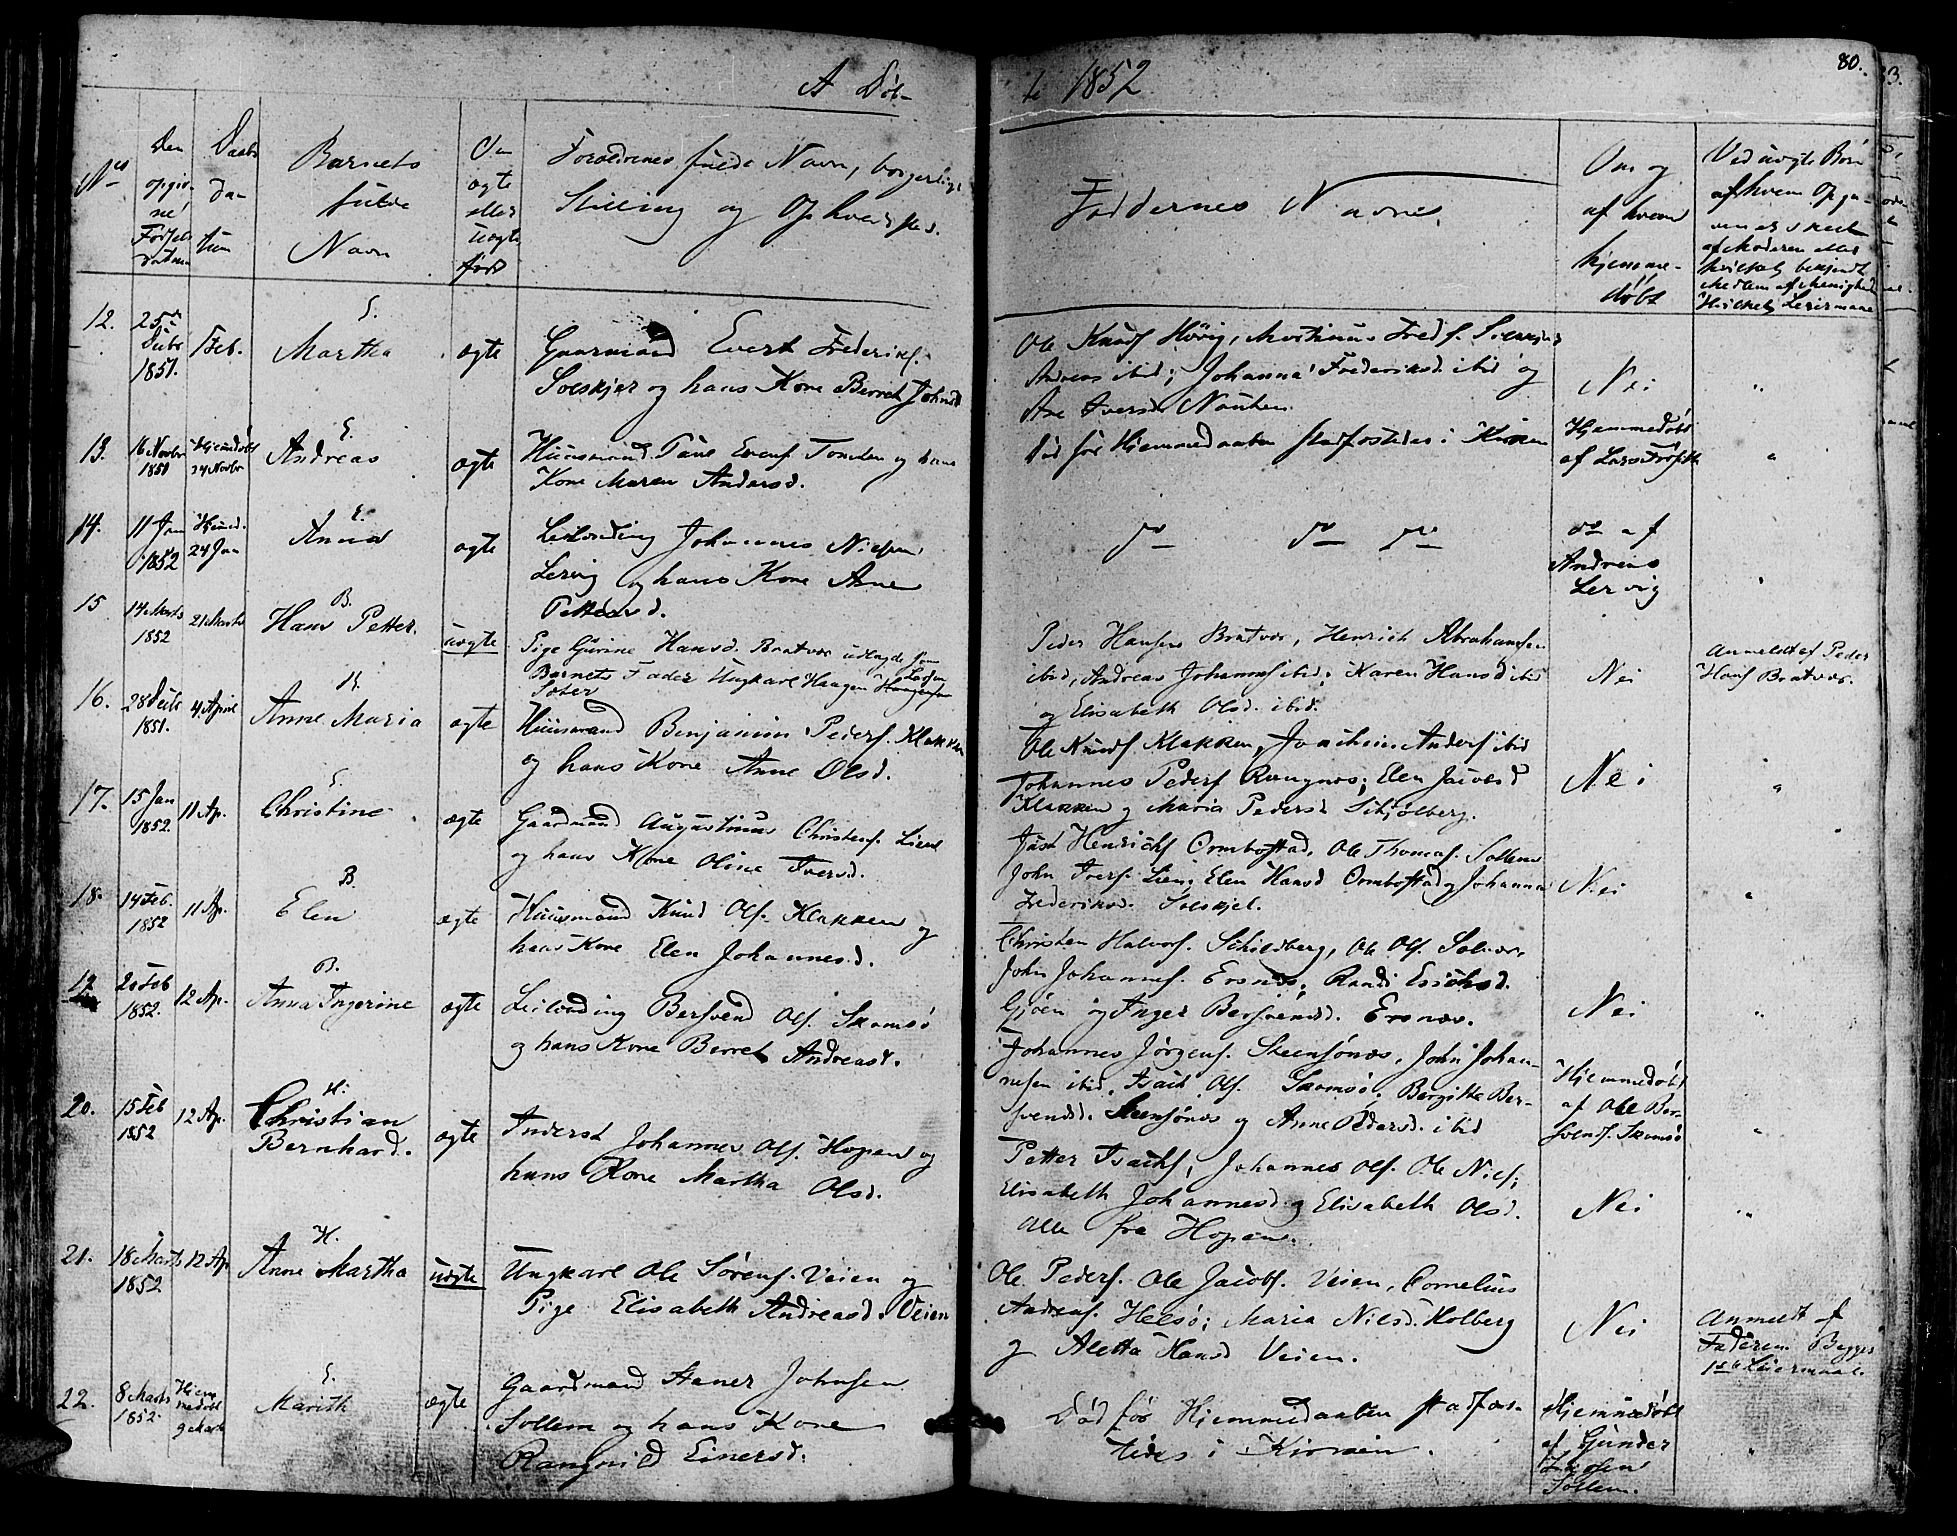 A Døb-
te 1852
80.
No
Den opgivne Fødselsdatum
Daabs Datum
Barnets fulde Navn
Om ægte eller uægte født
Forældrenes fulde Navn, borgerlige
Stilling og Opholdssted.
Faddernes Navne.
Om og af hvem hjemmedøbt
Ved uægte Børn af hvem Opgaven er skeet af Moderen eller
12. 25de Decbr 1851. 1 Feb. E. Martha ægte Gaarmand Evert Frederiks.
Solskjer og hans Kone Berret Johnsd
Ole Knuds. Hövig, Mortinus Freds. Solskjer
Andreas ibid; Johanna Frederiksd. ibid og
Ane Iversd.
Nei "
13. 16 Novbr 1851 Hjemdøbt 24 Novbr E. Andreas ægte Huusmand Evens. Tonden og hans
Kone Maren Andersd.
Død før Hjemmedaaben stadfæstedes i Kirken
Hjemmedøbt
af Lars "
14. 11 Jan 1852 Hjemd. 24 Jan E. Anna ægte Leilending Johannes Nielsen
Lervig og hans Kone Ane
Pettersd.
do do do
do af
Andreas
Lervig "
15 14 Marts 1852 21 Marts B. Hans Petter. uægte Pige Gurine Hansd. Bratvær udlagde som
Barnets Fader Ungkarl Haagen Larsen
Peder Hansen Bratvær, Henrich Abrahamsen
ibid, Andreas Johanns. ibid; Karen Hansd ibid
og Elisabeth Olsd. ibid.
Nei
Anmeldt af Peder
Hans. Bratvær.
16. 28 Decbr 1851. 4 April H. Anne Maria ægte Huusmand Benjamin Peders. Klakken
og hans Kone Anne Olsd.
Ole Knuds. Klakken, Jonchein Anders. ibid
Johannes Peders. Rangnes; Elen Jacobsd
Klakken og Maria Pedersd. Schjølberg.
Nei "
17. 15 Jan 1852. 11 Ap. E. Christine ægte Gaardmand Augustinus Christens. Lien
og hans Kone Oline Iversd.
Just Henrichs. Ormbostad, Ole Thomas. Sollem
John Ivers. Lien; Elen Hansd Ormbostad og Johanna
Frederiksd. Solskjel.
Nei "
18. 14 Feb. 1852 11 Ap. B. Elen ægte Huusmand Knud Ols. Klakken og
hans Kone Elen Johannesd.
Christen Halvors. Schielberg, Ole Ols.
John Johannes. Ersnes; Randi Erichsd.
Gjøen og Inger Bersvensd. Ersnæs.
Nei "
19. 20 Feb 1852. 12 Ap. B. Anna Ingerine ægte Leilending Bersvend Ols. Skomsö
og hans Kone Berret Andreasd.
Johannes Jørgens. Steensønæs, John Johan-
nesen ibid, Isach Ols. Skomsö; Bergitte Ber-
svendsd. Steensønæs og Anne Pedersd. ibid
Hjemmedøbt
af Ole Ber-
svends. Skomsö "
20. 15 Feb 1852 12 Ap. H. Christian
Bernhard. ægte Inderst Johannes Ols. Hopen og
hans Kone Martha Olsd.
Petter Isachs; Johannes Ols. Ole Niels;
Elisabeth Johannesd. og Elisabeth Olsd.
alle fra Hopen.
Nei "
21. 18 Marts 1852 12 Ap H. Anne Martha uægte Ungkarl Ole Sörens. Veien og
Pige Elisabeth Andreasd. Veien
Ole Peders. Ole Jacobs. Veien, Cornelius
Andreas. Helsö; Maria Nilsd. Holberg
og Aletta Hansd Veien.
Nei
Anmeldt af
Faderen. Begges
1ste Leiermaal.
22. 8 Marts 1852. Hjemmedøbt 9 Marts E. Marith ægte Gaardmand Johnsen
Sollem og hans Kone
Rangnild Einersd.
Død før Hjemmedaaben stadfæs-
tedes i Kirken.
Hjemmedøbt
af Gunder
Larsen
Sollem. "